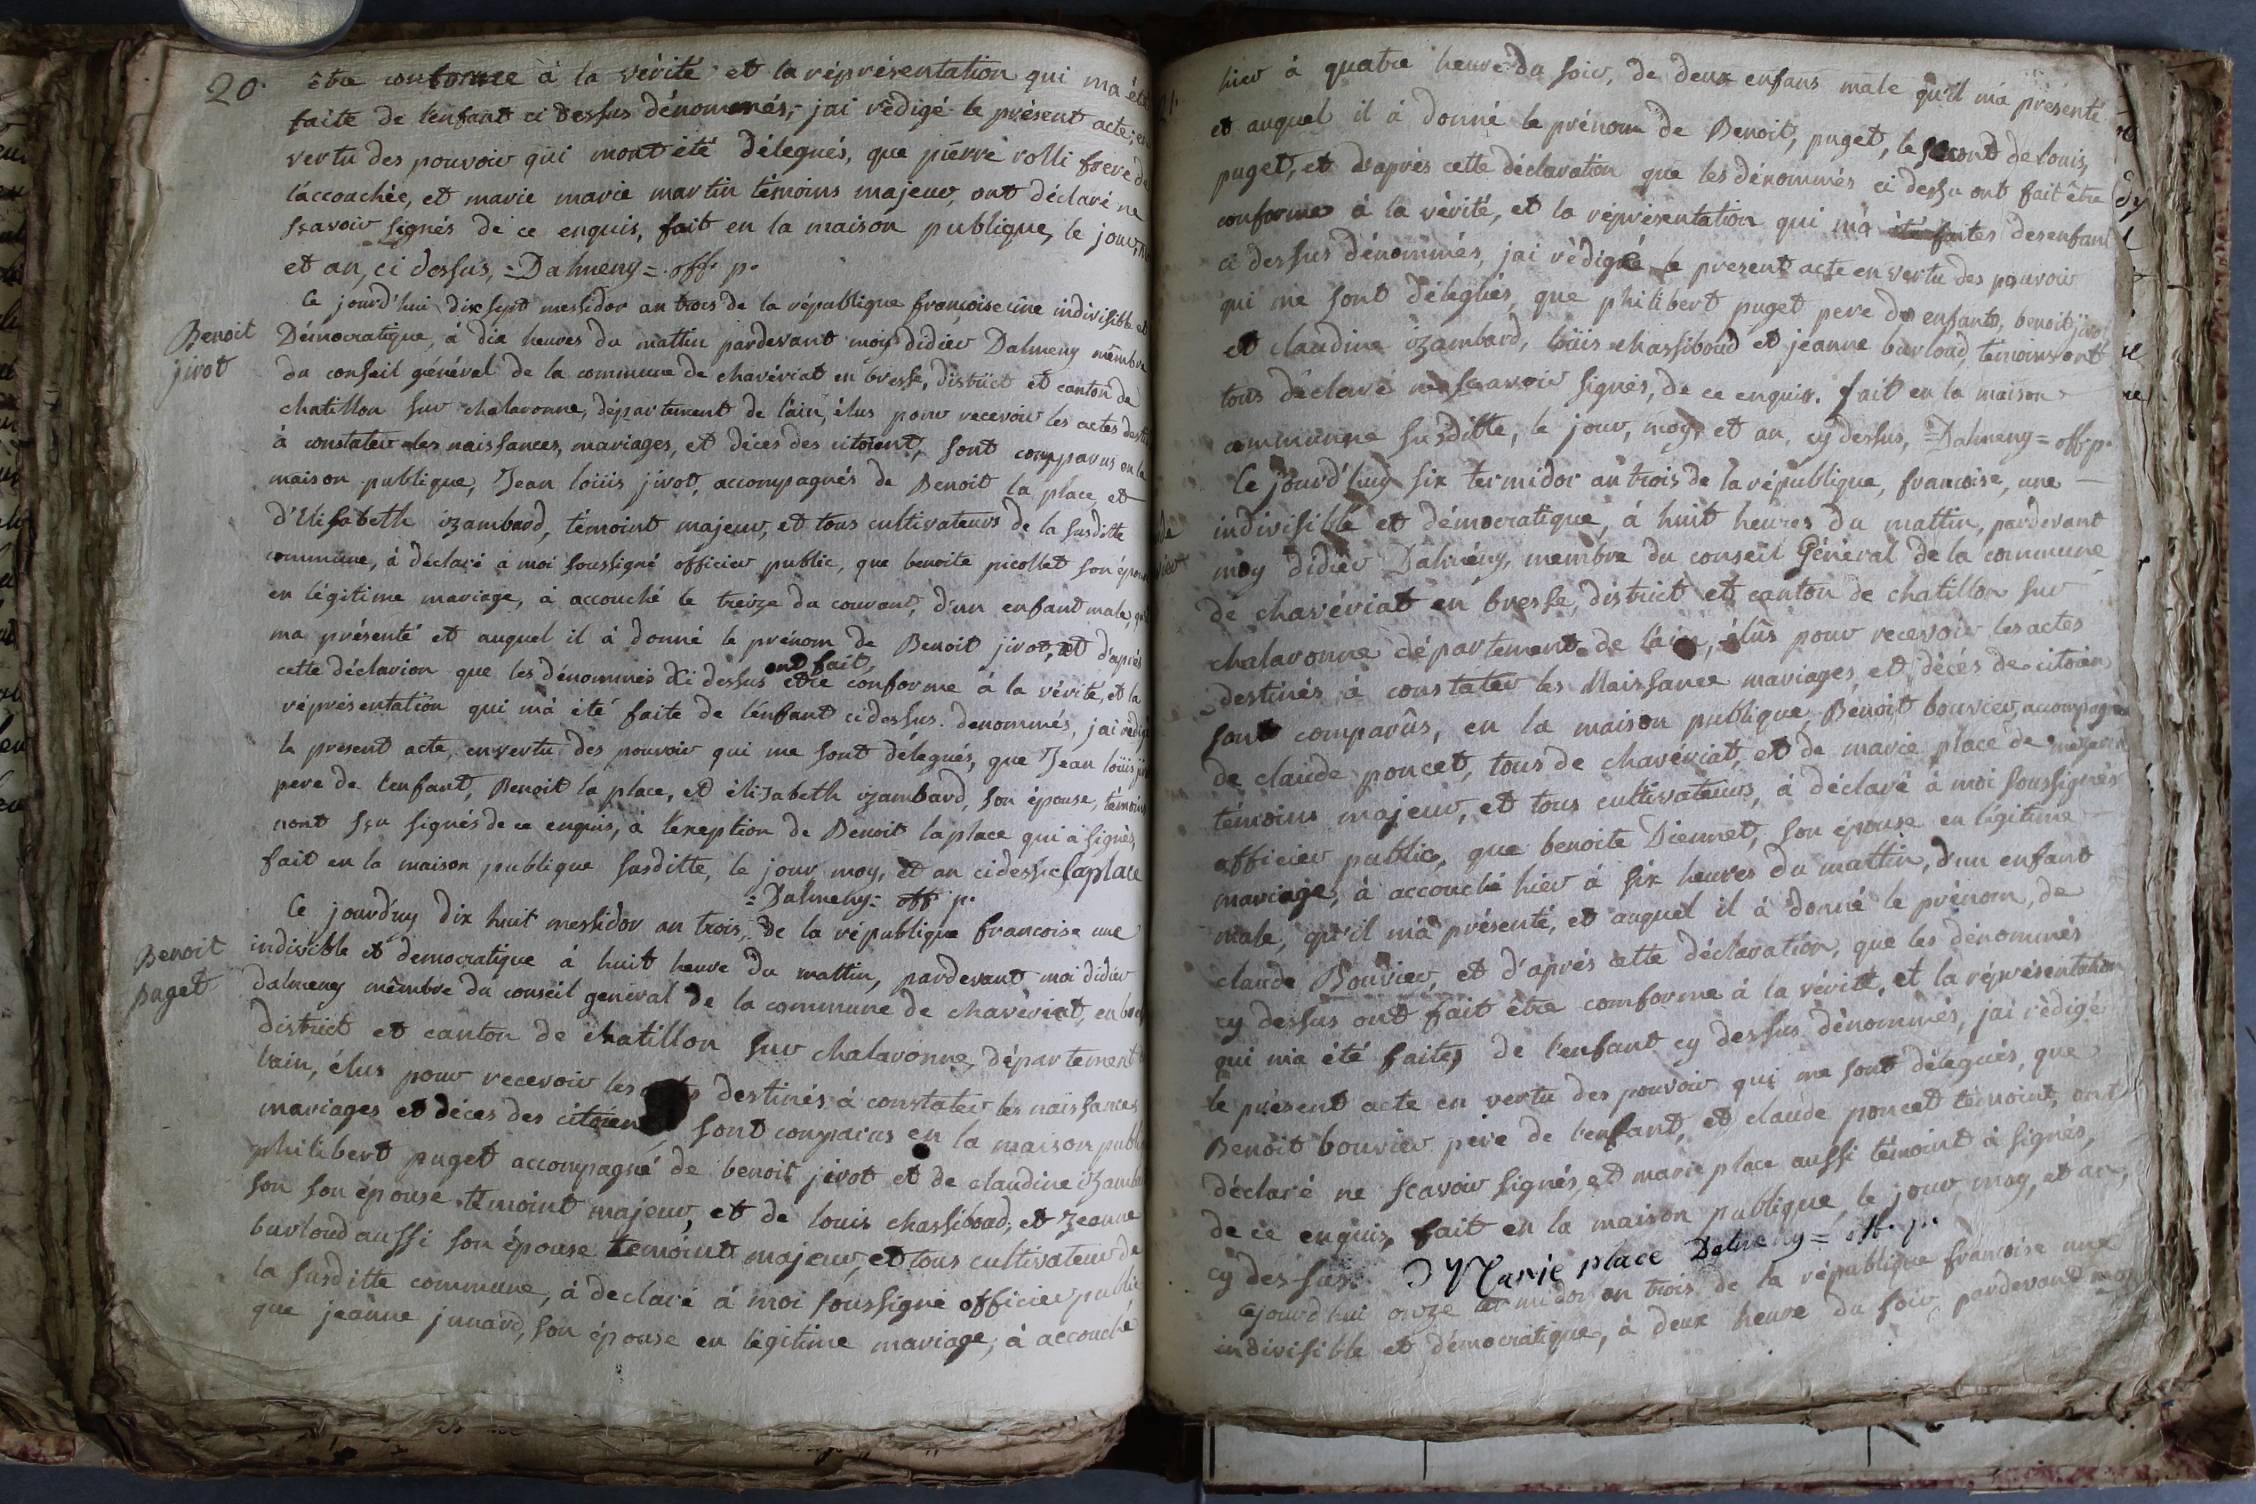 20.
être conforme à la vérité et la réprésentation qui ma été
faite de l'enfant ci dessus dénommés, jai rédigé le présent acte, en
vertu des pouvoir qui mont été délegués, que pierre rolli frere de
l'accoachée, et marie marie martin témoins majeur, ont déclaré ne
sçavoir signés de ce enquis, fait en la maison publique, le jour,
et an, ci dessus, =Dalmeny= off. p.
Benoit
jivot
Ce jourd'hui dix sept messidor an trois de la république françoise une indivisible et
Démocratique, à dix heures du mattin pardevant moy didier Dalmeny membre
du conseil général de la commune de chavériat en bresse, district et canton de
chatillon sur chalaronne, département de l'ain, élus pour recevoir les actes destinés
à constater les naissances, mariages, et décés des citoient, sont comparus en la
maison publique, Jean loüis jivot, accompagnés de Benoit la place, et
d'Elisabeth izambard, témoint majeur, et tous cultivateurs de la susditte
commune, à déclaré à moi soussigné officier public, que benoite picollet son épouse
en légitime mariage, à accouché le treize du courant, d'un enfant male, qu'il
ma présenté et auquel il à donné le prénom de Benoit jivot, et d'aprés
cette déclarion que les dénommés ci dessus ont fait être conforme à la vérité, et la
réprésentation qui m'à été faite de l'énfant cidessus dénommés, jai rédigé
le present acte, en vertu des pouvoir qui me sont délegués, que Jean loüis jivot
pere de l'enfant, Benoit la place, et élizabeth izambard, son épouse, témoins
nont sçu signés de ce enquis, à l'exeption de Benoit laplace qui à signés,
fait en la maison publique susditte, le jour, moy, et an cidessus laplace
=Dalmeny= off p.
Benoit
puget
Ce jourd'uy dix huit messidor an trois, de la république francoise une
indivisible et democratique à huit heure du mattin, pardevant moi didier
dalmeny membre du conseil general de la commune de chavériat, en bresse
district et canton de chatillon sur chalaronne, département
lain, élus pour recevoir les destinés à constater les naissances
mariages et déces des citoien sont comparus en la maison publ
philibert puget accompagné de benoit jivot et de claudine izamb
son son épouse témoint majeur, et de louis chassiboud, et Jeanne
burloud aussi son épouse témoint majeur, et tous cultivateur de
la susditte commune, à declaré à moi soussigné officier public
que jeanne junard, son épouse en légitime mariage, à accouché
hier à quatre heure du soir, de deux enfans male qu'il mà présenté
et auquel il à donné le prénom de Benoit, puget, le second de louis,
puget, et d'aprés cette déclaration que les dénommés ci dessu ont fait être
conforme à la vérité, et la réprésentation qui m'à été faites desenfant
ci dessus dénommés, jai rédigé le present acte en vertu des pouvoir
qui me sont délegués, que philibert puget pere de enfants, benoit jivot
et claudine izambard, loüis chassiboud et jeanne burloud, témoins ont
tous déclaré ne sçavoir signés, de ce enquis. fait en la maison
commune susditte, le jour, moy, et an, cy dessus, =Dalmeny= off p.
Ce jourd'huy six termidor an trois de la république, francoise, une
indivisible et démocratique, à huit heures du mattin, pardevant
moy didier Dalmény, membre du conseil Général de la commune
de chavériat en bresse, district et canton de chatillon sur
chalaronne département de l'ain, élûs pour recevoir les actes
destinés à constater les Naissance mariages, et décés de citoiens
sont comparûs, en la maison publique, Benoit bouvier, accompagné
de claude poncet, tous de chavériat, et de marie place de
témoins majeur, et tous cultivateurs, à déclaré à moi soussignés
officier public, que benoite Diennet, son épouse en légitime
mariage, à accouché hier à six heures du mattin, d'un enfant
male, qu'il m'à présenté, et auquel il à donné le prénom, de
claude Bouvier, et d'aprés cette déclaration, que les dénommés
cy dessus ont fait être comforme à la vérité, et la réprésentation
qui m'a été faites de l'enfant cy dessus dénommés, jai rédigé
le présent acte en vertu des pouvoir qui me sont délegués, que
Benoit bouvier pere de l'enfant, et claude poncet témoint, ont
déclaré ne sçavoir signés, et marie place aussi témoint à signés,
de ce enquis, fait en la maison publique, le jour, moy, et an,
cy dessus. Marie place Dalmeny = off. p.
Cejourd'hui onze termidor an trois de la république françoise une
indivisible et démocratique, à deux heure du soir, pardevant moy